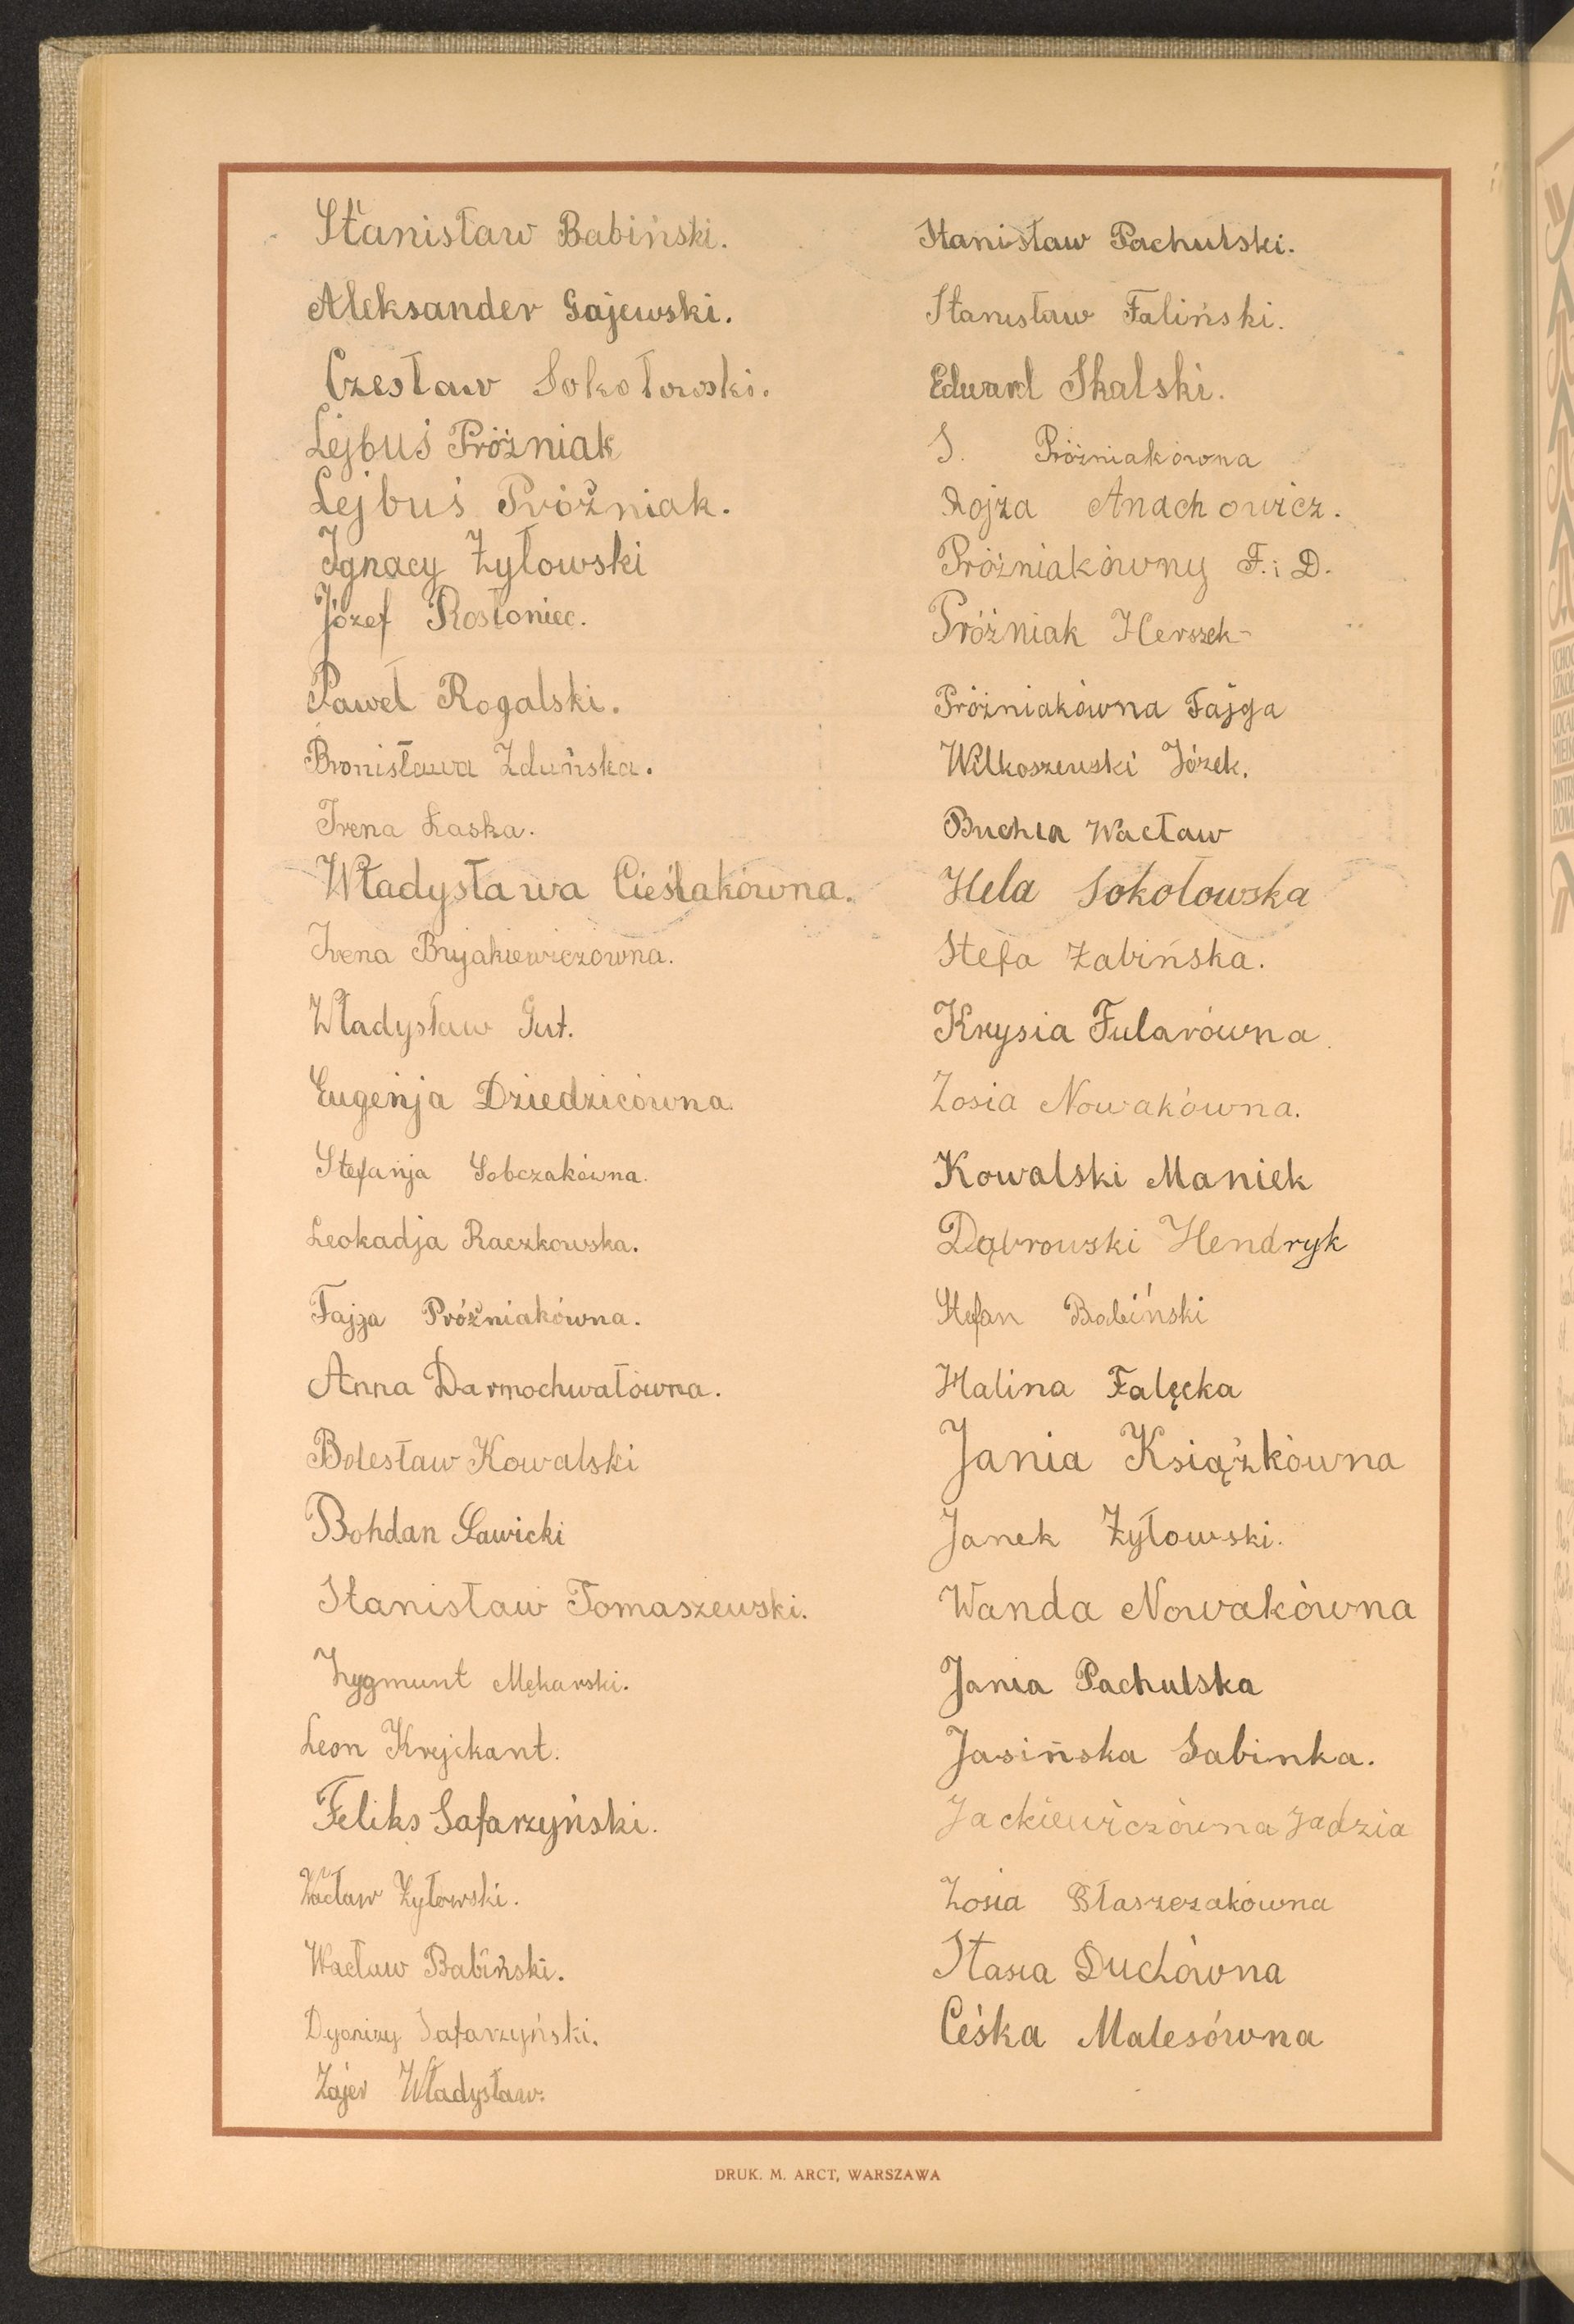 Stanisław Babiński.
Aleksander Gajewski.
Czesław Sokołowski.
Lejbuś Próżniak
Lejbuś Próżniak.
Ignacy Żyłowski
Józef Rosłoniec.
Paweł Rogalski.
Bronisława Zduńska.
Irena Łaska.
Władysława Cieślakówna.
Irena Bryjakiewiczówna.
Władysław Gut.
Eugenja Dziedzicówna.
Stefanja Sobczakówna.
Leokadja Raczkowska.
Fajga Próżniakówna.
Anna Darmochwałówna.
Bolesław Kowalski
Bohdan Sawicki
Stanisław Tomaszewski.
Zygmunt Mękarski.
Leon Krejckant.
Feliks Safarzyński.
Wacław Żyłowski.
Wacław Babiński.
Dyonizy Safarzyński.
Zajer Władysław.
Stanisław Pachulski.
Stanisław Faliński.
Edward Skalski.
S. Próżniakówna
Rojza Anachowicz.
Próżniakówny F. i D.
Próżniak Herszek
Próżniakówna Fajga
Wilkoszewski Józek.
Buchta Wacław
Hela Sokołowska
Stefa Żabińska.
Krysia Fularówna.
Zosia Nowakówna.
Kowalski Maniek
Dąbrowski Hendryk
Stefan Babiński
Halina Falęcka
Jania Książkówna
Janek Żyłowski.
Wanda Nowakówna
Jania Pachulska
Jasińska Sabinka.
Jackiewiczówna Jadzia
Zosia Błaszczakówna
Stasia Duchówna
Ceśka Malesówna
DRUK. M. ARCT, WARSZAWA